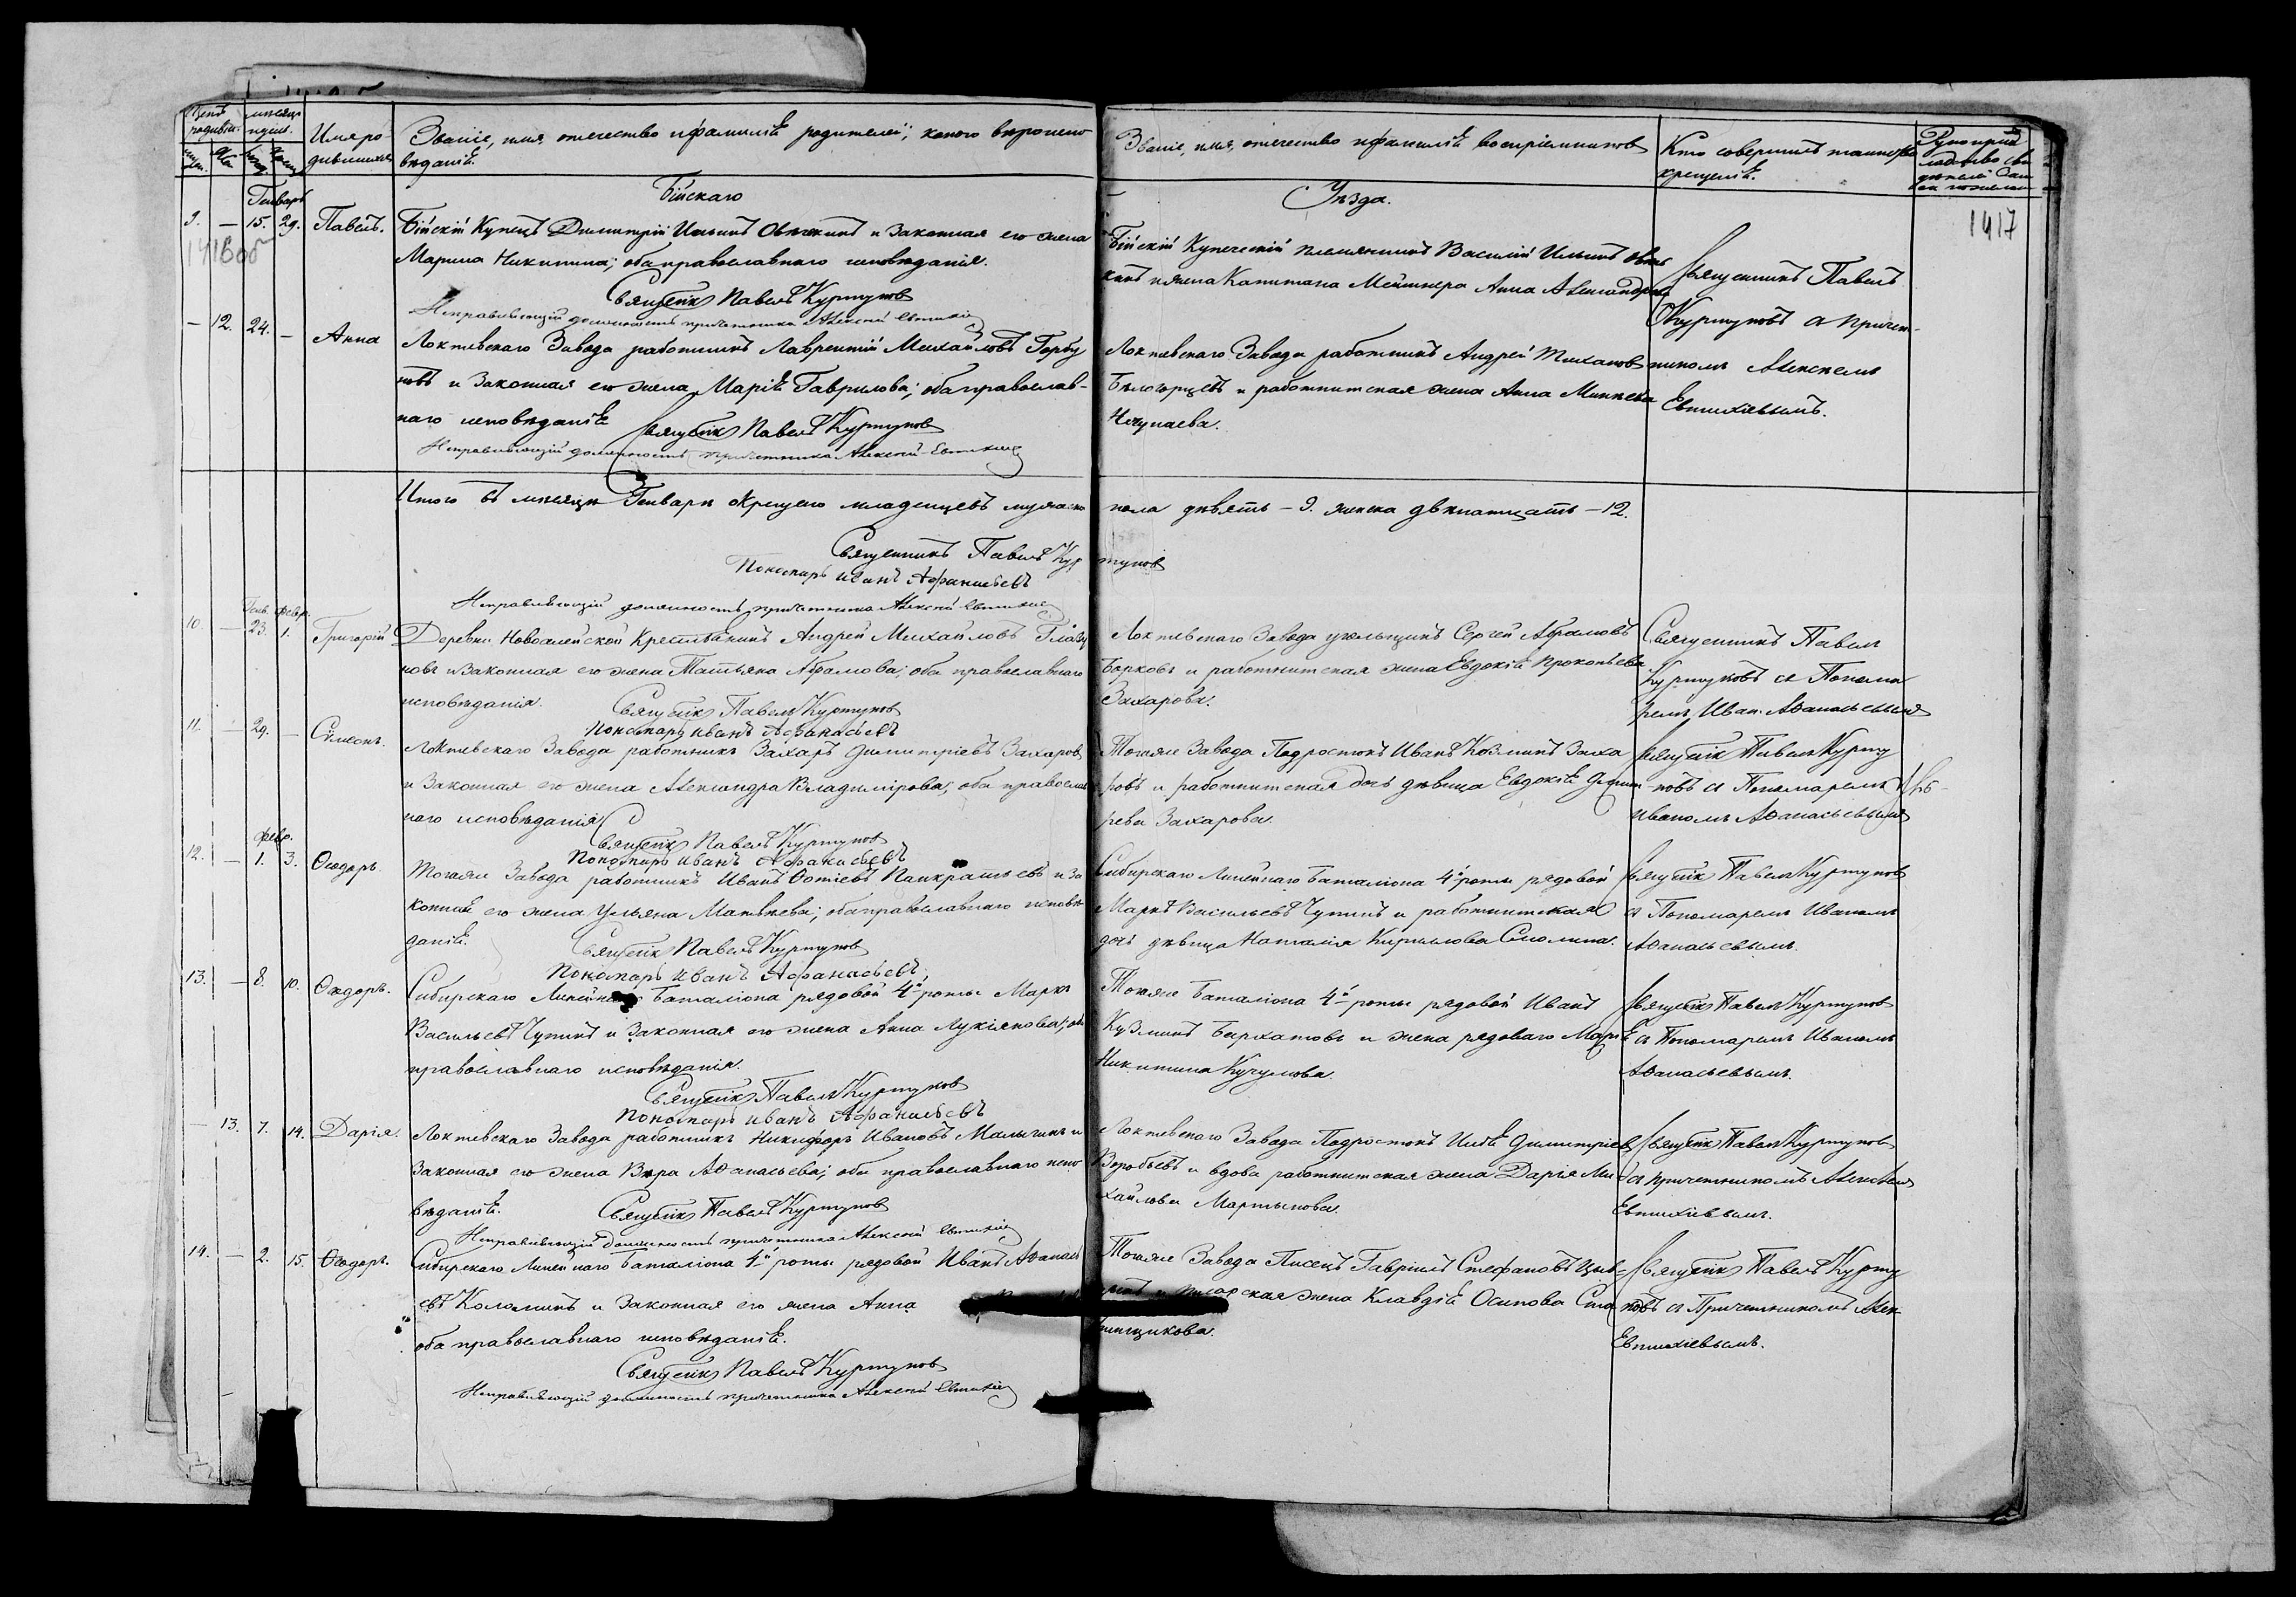 Счетъ родивш. мѣсяцъ и день.
Имя ро-
дившихся
Званіе, имя, отечество и фамилія родителей; какого вѣроиспо-
вѣданія.
Званіе, имя, отечество и фамилія воспріемниковъ
Кто совершилъ таинство
крещенія.
Рукоприк
ладство сви
дѣтелей
Генварь
Бійскаго
Уѣзда.
1417
9. — 15. 29. Павелъ.
Бійскій Купецъ Димитрій Ильинъ и Законная его жена
Марина Никитина; оба православнаго исповѣданія.
Священникъ Павелъ Куртуковъ
Исправляющій должность причетника Алексѣй Евтихіевъ
Бійскій Купеческій племянникъ Василій Ильинъ
и жена Капитана Мейшнера Анна Александрова
Священникъ Павелъ
Куртуковъ съ причет-
никомъ Алексѣемъ
Евтихіевымъ.
— 12. 24. — Анна
Локтевскаго Завода работникъ Лаврентій Михайловъ Горбу
новъ и Законная его жена Марія Гаврилова; оба православ-
наго исповѣданія
Священникъ Павелъ Куртуковъ
Исправляющій должность причетника Алексѣй Евтихіевъ
Локтевскаго Завода работникъ Андрей Тихановъ
Бѣлогорцевъ и работнитская жена Анна Минѣева
Нечунаева.
Итого въ мѣсяцѣ Генварѣ крещено младенцевъ мужеска
пола девять — 9. женска двенатцать — 12.
Священникъ Павелъ Кур
туковъ
Пономарь Иванъ Афанасьевъ
Исправляющій должность причетника Алексѣй Евтихіевъ
Генв. Февр.
10. — 23. 1. Григорій
Деревни Новоалейской Крестьянинъ Андрей Михайловъ Глазу
новъ и Законная его жена Татьяна Абрамова; оба православнаго
исповѣданія.
Священникъ Павелъ Куртуковъ
Пономарь Иванъ Афанасьевъ
Локтевскаго Завода угольщикъ Сергей Абрамовъ
Борковъ и работнитская жена Евдокія Прокопьева
Захарова.
Священникъ Павелъ
Куртуковъ съ Понома
ремъ Иван. Аѳанасьевымъ
11. — 29. — Сѵмеонъ.
Локтевскаго Завода работникъ Захаръ Димитріевъ Захаровъ
и Законная его жена Александра Владимірова; оба православ
наго исповѣданія
Священникъ Павелъ Куртуковъ
Пономарь Иванъ Афанасьевъ
Тогоже Завода Подростокъ Иванъ Козминъ Заха
ровъ и работнитская дочь дѣвица Евдокія Димит
рева Захарова.
Священникъ Павелъ Курту
ковъ съ Пономаремъ
Иваномъ Аѳанасьевымъ
Февр.
12. — 1. 3. Ѳеодоръ.
Тогоже Завода работникъ Иванъ Ѳотіевъ Панкратьевъ и За
конная его жена Ульяна Матвѣева; оба православнаго исповѣ
данія.
Священникъ Павелъ Куртуковъ
Пономарь Иванъ Афанасьевъ
Сибирскаго Линейнаго Баталіона 4й роты рядовой
Маркъ Васильевъ Чупинъ и работнитская
дочь дѣвица Наталія Кирилова Смолина.
Священникъ Павелъ Куртуковъ
съ Пономаремъ Иваномъ
Аѳанасьевымъ.
13. — 8. 10. Ѳеодоръ.
Сибирскаго Линейнаго Баталіона рядовой 4й роты Маркъ
Васильевъ Чупинъ и Законная его жена Анна Лукіянова; оба
православнаго исповѣданія.
Священникъ Павелъ Куртуковъ
Пономарь Иванъ Афанасьевъ
Тогоже Баталіона 4й роты рядовой Иванъ
Кузминъ Бархатовъ и жена рядоваго Марія
Никитина Кучумова.
Священникъ Павелъ Куртуковъ
съ Пономаремъ Иваномъ
Аѳанасьевымъ.
— 13. 7. 14. Дарія.
Локтевскаго Завода работникъ Никифоръ Ивановъ Малыгинъ и
Законная его жена Вѣра Аѳанасьева; оба православнаго испо
вѣданія.
Священникъ Павелъ Куртуковъ
Исправляющій должность причетника Алексѣй Евтихіевъ
Локтевскаго Завода Подростокъ Илья Димитріевъ
Воробьевъ и вдова работнитская жена Дарія Ми
хайлова Мартынова.
Священникъ Павелъ Куртуковъ
съ причетникомъ Алексѣемъ
Евтихіевымъ.
14. — 2. 15. Ѳеодоръ.
Сибирскаго Линейнаго Баталіона 4й роты рядовой Иванъ Аѳанась
евъ Коломинъ и Законная его жена Анна
оба православнаго исповѣданія.
Священникъ Павелъ Куртуковъ
Исправляющій должность причетника Алексѣй Евтихіевъ
Тогоже Завода Писецъ Гавріилъ Стефановъ
и писарская жена Клавдія Осипова Ста
нщикова.
Священникъ Павелъ Курту
ковъ съ Причетникомъ Алек
Евтихіевымъ.